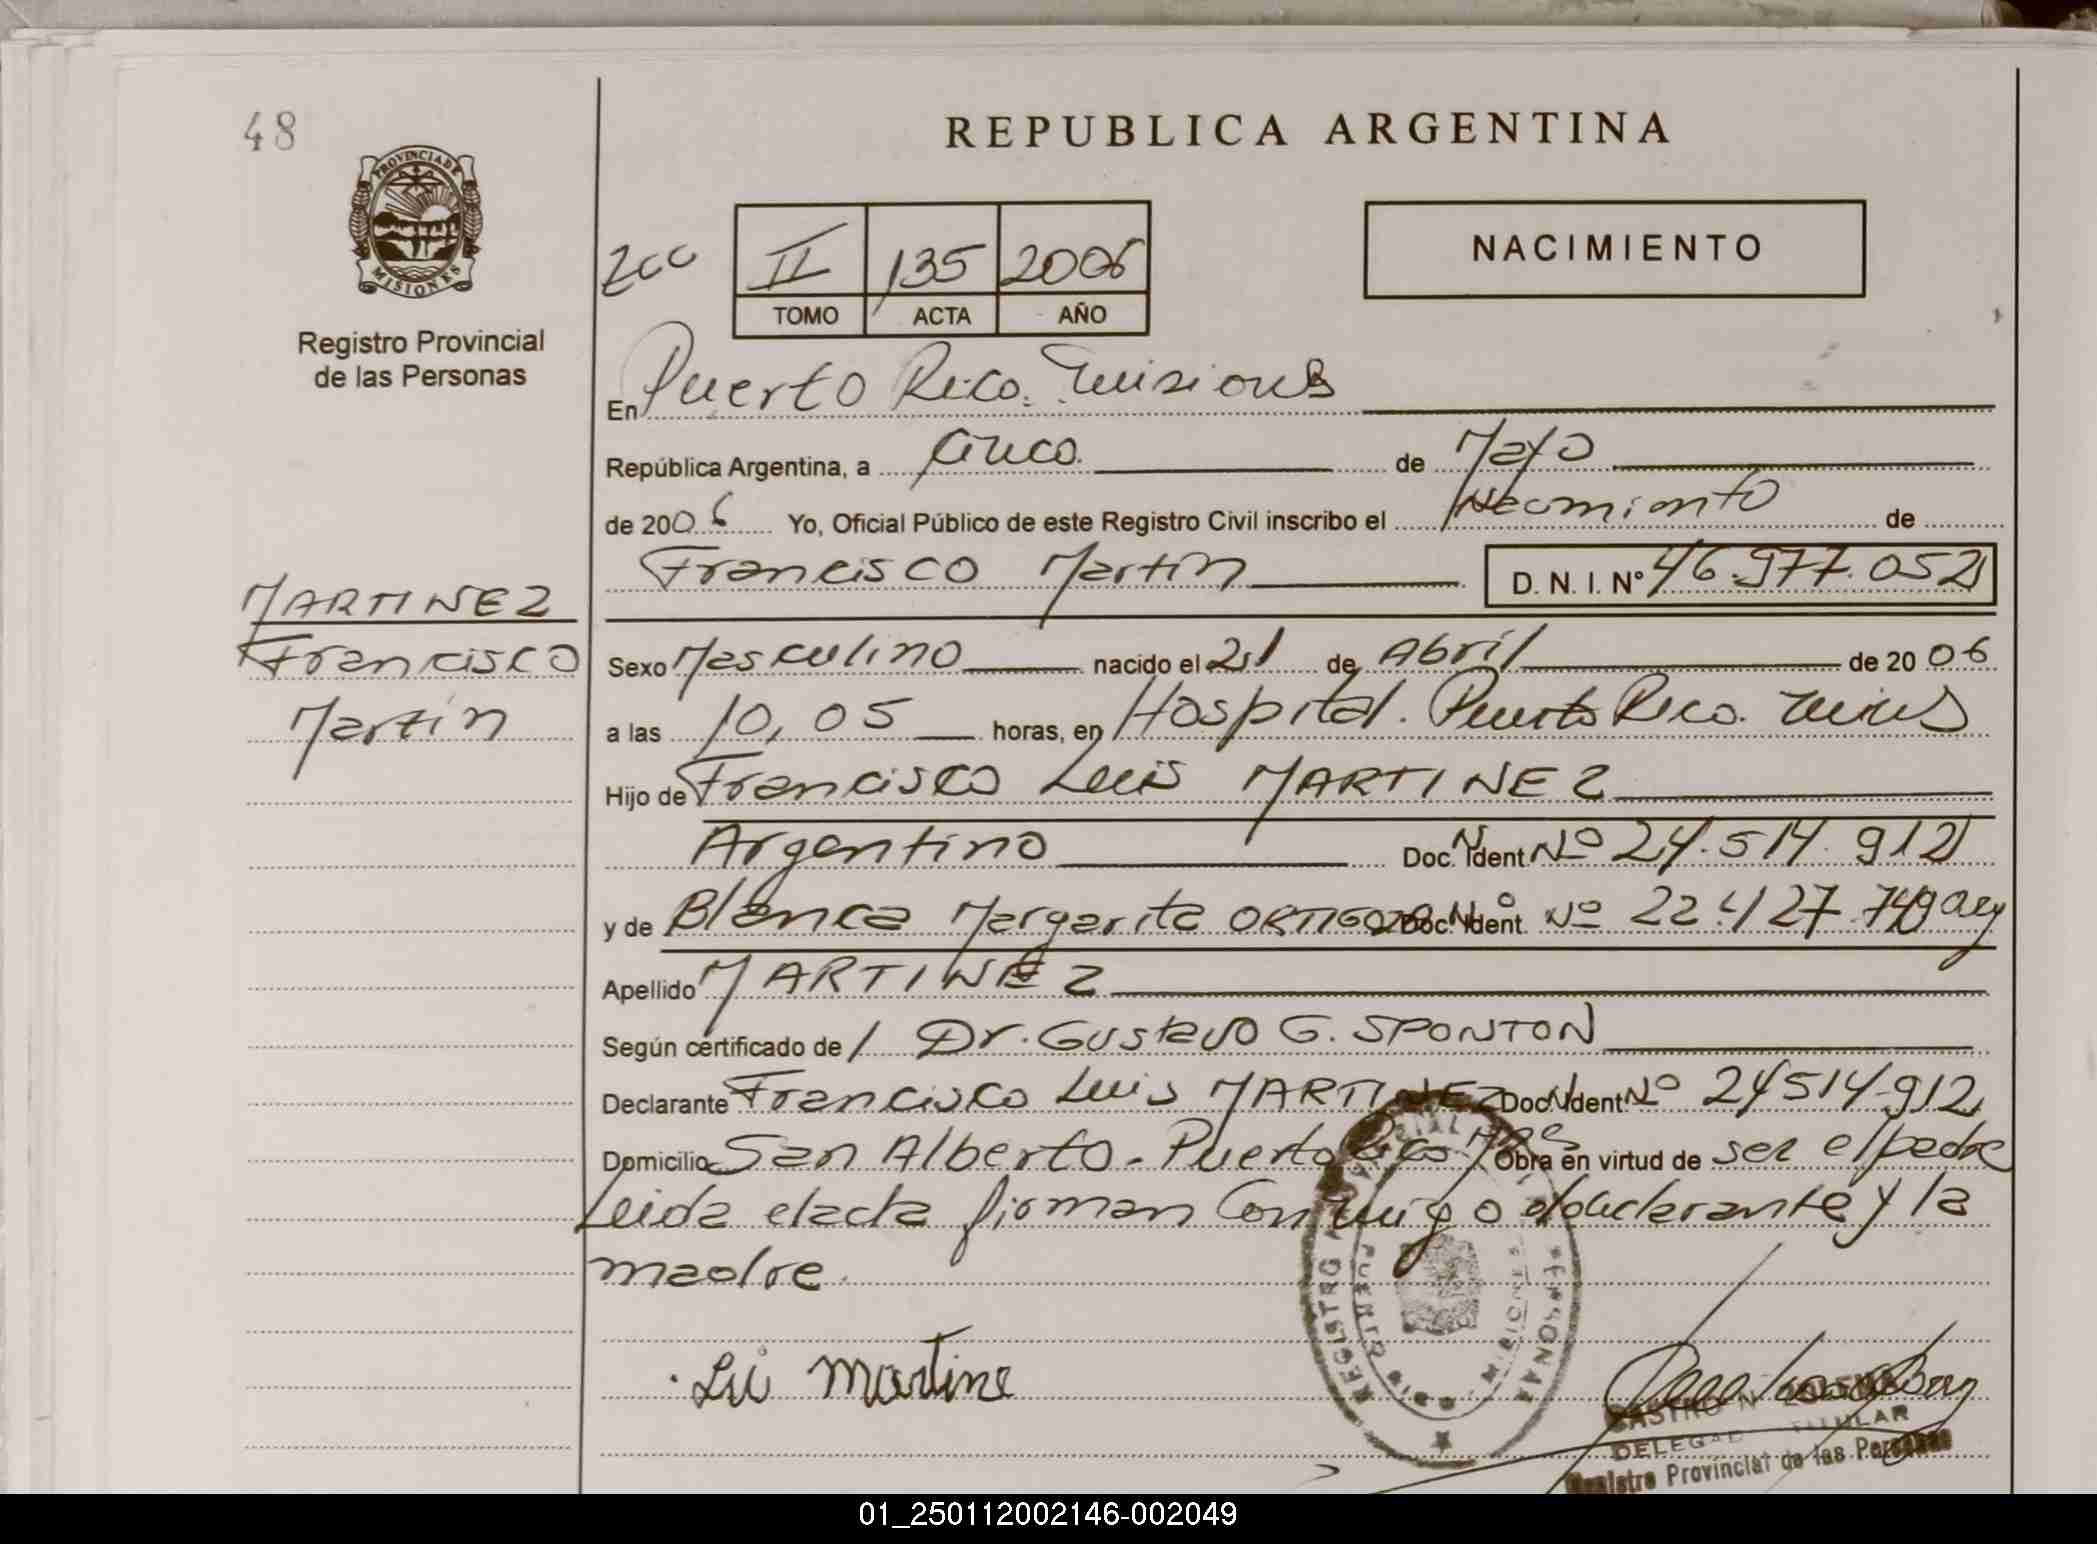 48
REPUBLICA ARGENTINA
PROVINCIA DE
MISIONES
Registro Provincial
de las Personas
II 135 2006
TOMO ACTA AÑO
NACIMIENTO
En Puerto Rico. Misiones
República Argentina, a cinco de Mayo
de 2006 Yo, Oficial Público de este Registro Civil inscribo el Nacimiento de
Francisco Martín D. N. I. Nº 46.977.052
MARTINEZ
Francisco
Martín
Sexo Masculino nacido el 21 de Abril de 2006
a las 10,05 horas, en Hospital. Puerto Rico.
Hijo de Francisco Luis MARTINEZ
Argentino Doc. Ident Nº 24.514.912
y de Blanca Margarita Doc. Ident. Nº 22.427.749 Arg
Apellido MARTINEZ
Según certificado de Dr. Gustavo G. SPONTON
Declarante Francisco Luis MARTINEZ Doc. Ident Nº 24514.912
Domicilio San Alberto - Puerto Rico Obra en virtud de ser el padre
Leida el acta firman conmigo declarante y la
madre.
Martine
REGISTRO PROVINCIAL DE LAS PERSONAS
PUERTO RICO
MISIONES
CASTRO N
DELEGADO TITULAR
Registro Provincial de las Personas
01_250112002146-002049